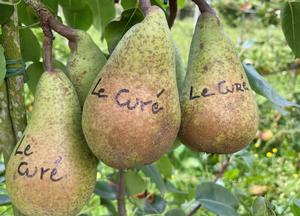 Le Curé
Le Curé
Le
Curé